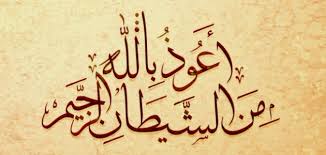 أَعُوذُ بِاللَّهِ
مِنَ الشَّيْطَانِ الرَّجِيمِ